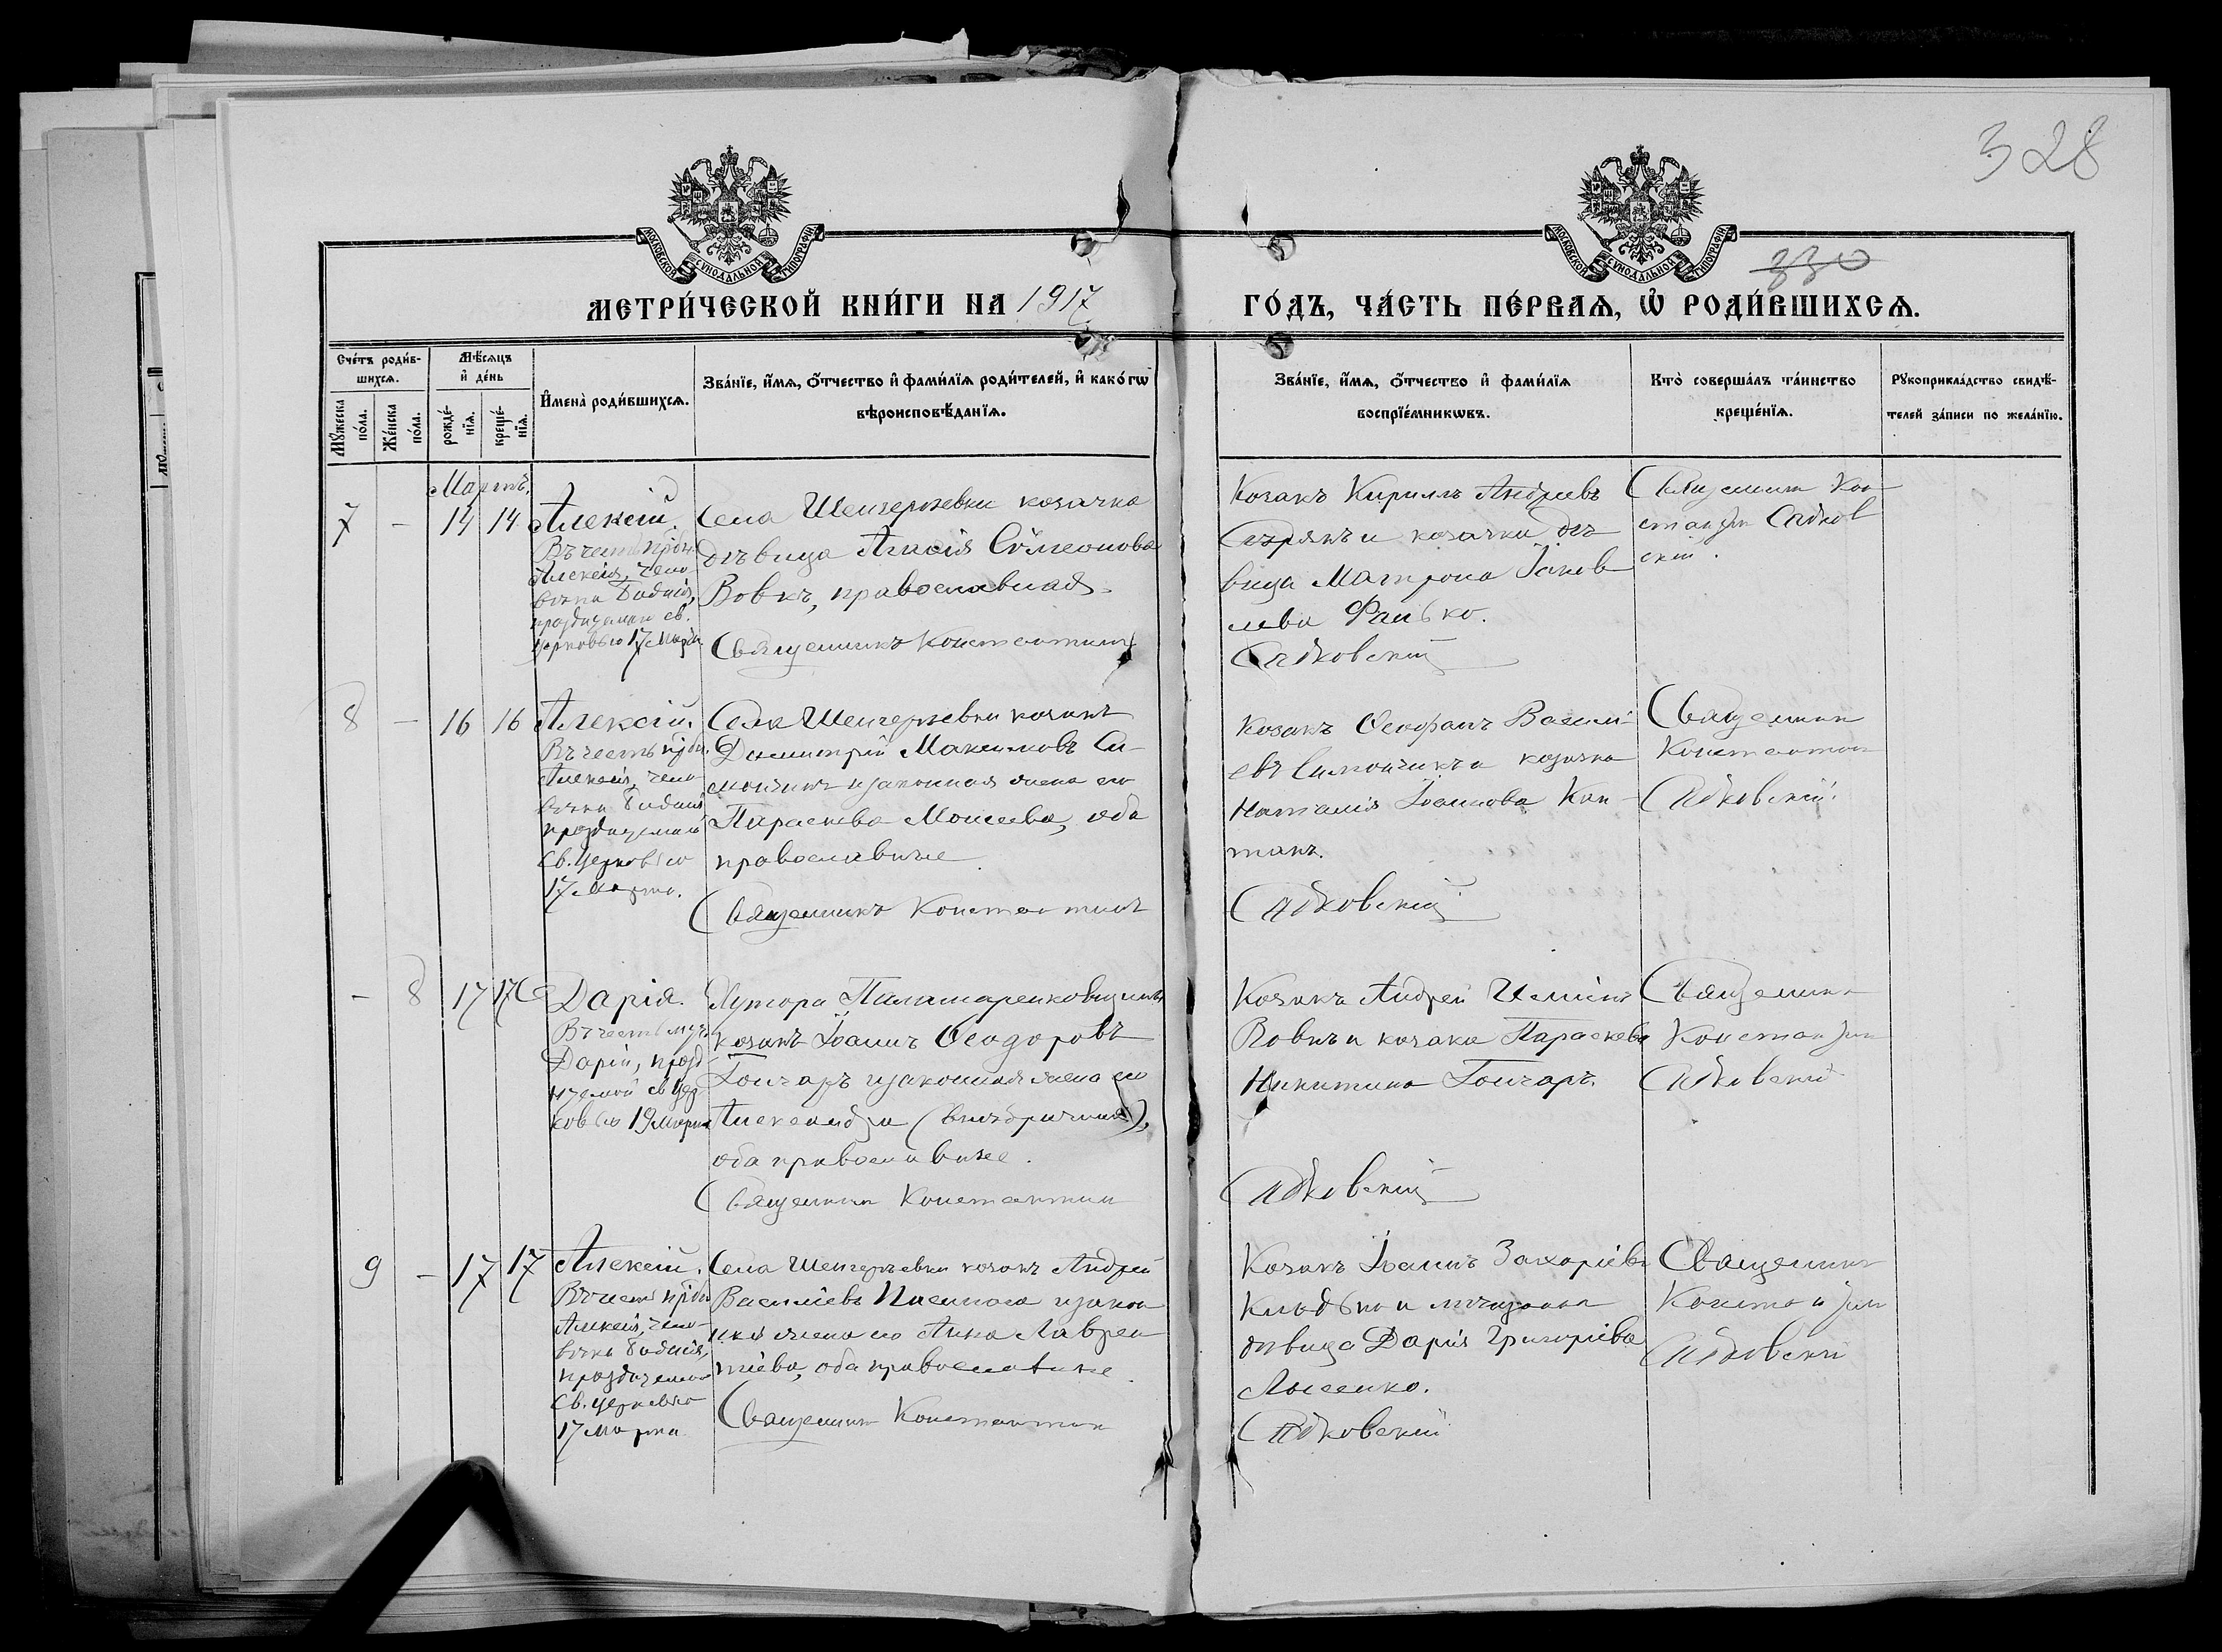 328
330
МОСКОВСКОЙ СѴНОДАЛЬНОЙ ТИПОГРАФІИ
МОСКОВСКОЙ СѴНОДАЛЬНОЙ ТИПОГРАФІИ
МЕТРИ́ЧЕСКОЙ КНИ́ГИ НА 1917
ГО́ДЪ, ЧА́СТЬ ПЕ́РВАѦ, Ѽ РОДИ́ВШИХСѦ.
Сче́тъ роди́в-
шихсѧ.
Мѣ́сѧцъ
и҆ де́нь
Мꙋ́жеска
по́ла.
Же́нска
по́ла.
рожде́-
нїѧ.
креще́-
нїѧ.
И҆мена̀ роди́вшихсѧ.
Зва́нїе, и҆́мѧ, ѻ҆́тчество и҆ фами́лїѧ роди́телей, и҆ како́гѡ
вѣроисповѣ́данїѧ.
Зва́нїе, и҆́мѧ, ѻ҆́тчество и҆ фами́лїѧ
воспрїе́мникѡвъ.
Кто̀ соверша́лъ та́инство
креще́нїѧ.
Рꙋкоприкла́дство свидѣ́-
телей за́писи по жела́нїю.
Мартъ.
7 - 14 14
Алексій.
Въ честь прп.
Алексія, чело-
вѣка Божія,
празднуемаго св.
церковью 17 Марта.
Села Шенгерѣевки козачка
дѣвица Агаѳія Сѵмеонова
Вовкъ, православная.
Священникъ Константинъ
Козакъ Кириллъ Андреевъ
и козачка дѣ-
вица Матрона Іаков-
лева Фанько.
Садковскій
Священник Кон-
стантин Садков
скій.
8 - 16 16
Алексій.
Въ честь прп.
Алексія, чело-
вѣка Божія
празднуемаго
св. церковью
17 Марта.
Села Шенгерѣевки козакъ
Димитрій Максимовъ Си-
мончикъ и законная жена его
Параскева Моисеева, оба
православные
Священникъ Константинъ
Козакъ Ѳеофанъ Васильевъ
Симончикъ и козачка
Наталія Іоаннова Кап-
танъ.
Садковскій
Священник
Константин
Садковскій.
- 8 17 17
Дарія.
Въ честь муч.
Даріи, празд-
нуемой св. цер-
ковью 19 Марта
Хутора
козакъ Іоаннъ Ѳеодоровъ
Гончаръ и законная жена его
Александра (внѣбрачная),
оба православные.
Священник Константин
Козакъ Андрей
Вовкъ и козачка Параскева
Никитина Гончаръ.
Садковскій
Священник
Константин
Садковскій
9 - 17 17
Алексій.
Въ честь прп.
Алексія, чело-
вѣка Божія,
празднуемаго
св. церковью
17 Марта
Села Шенгерѣевки козакъ Андрей
Василіевъ и закон-
ная жена его Анна Лаврен-
тіева, оба православные.
Священник Константин
Козакъ Іоаннъ Захаріевъ
и мѣщанка
дѣвица Дарія Григоріева
Лысенко.
Садковскій
Священник
Константин
Садковскій